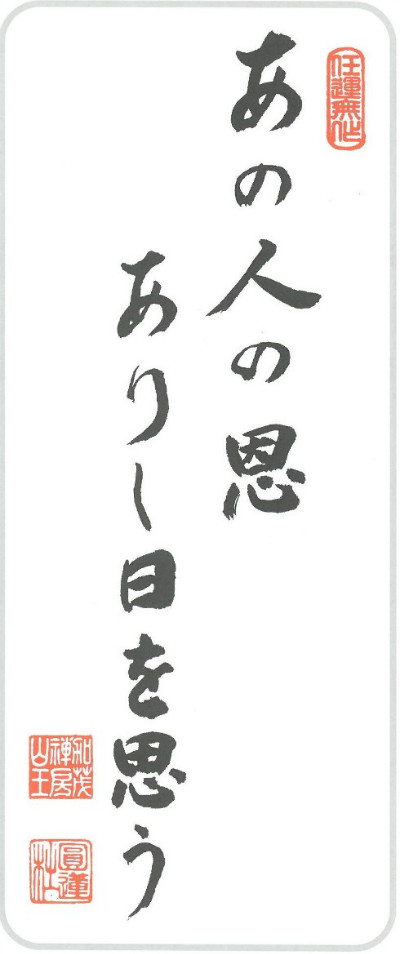 任運無作
あの人の恩
ありし日を思う